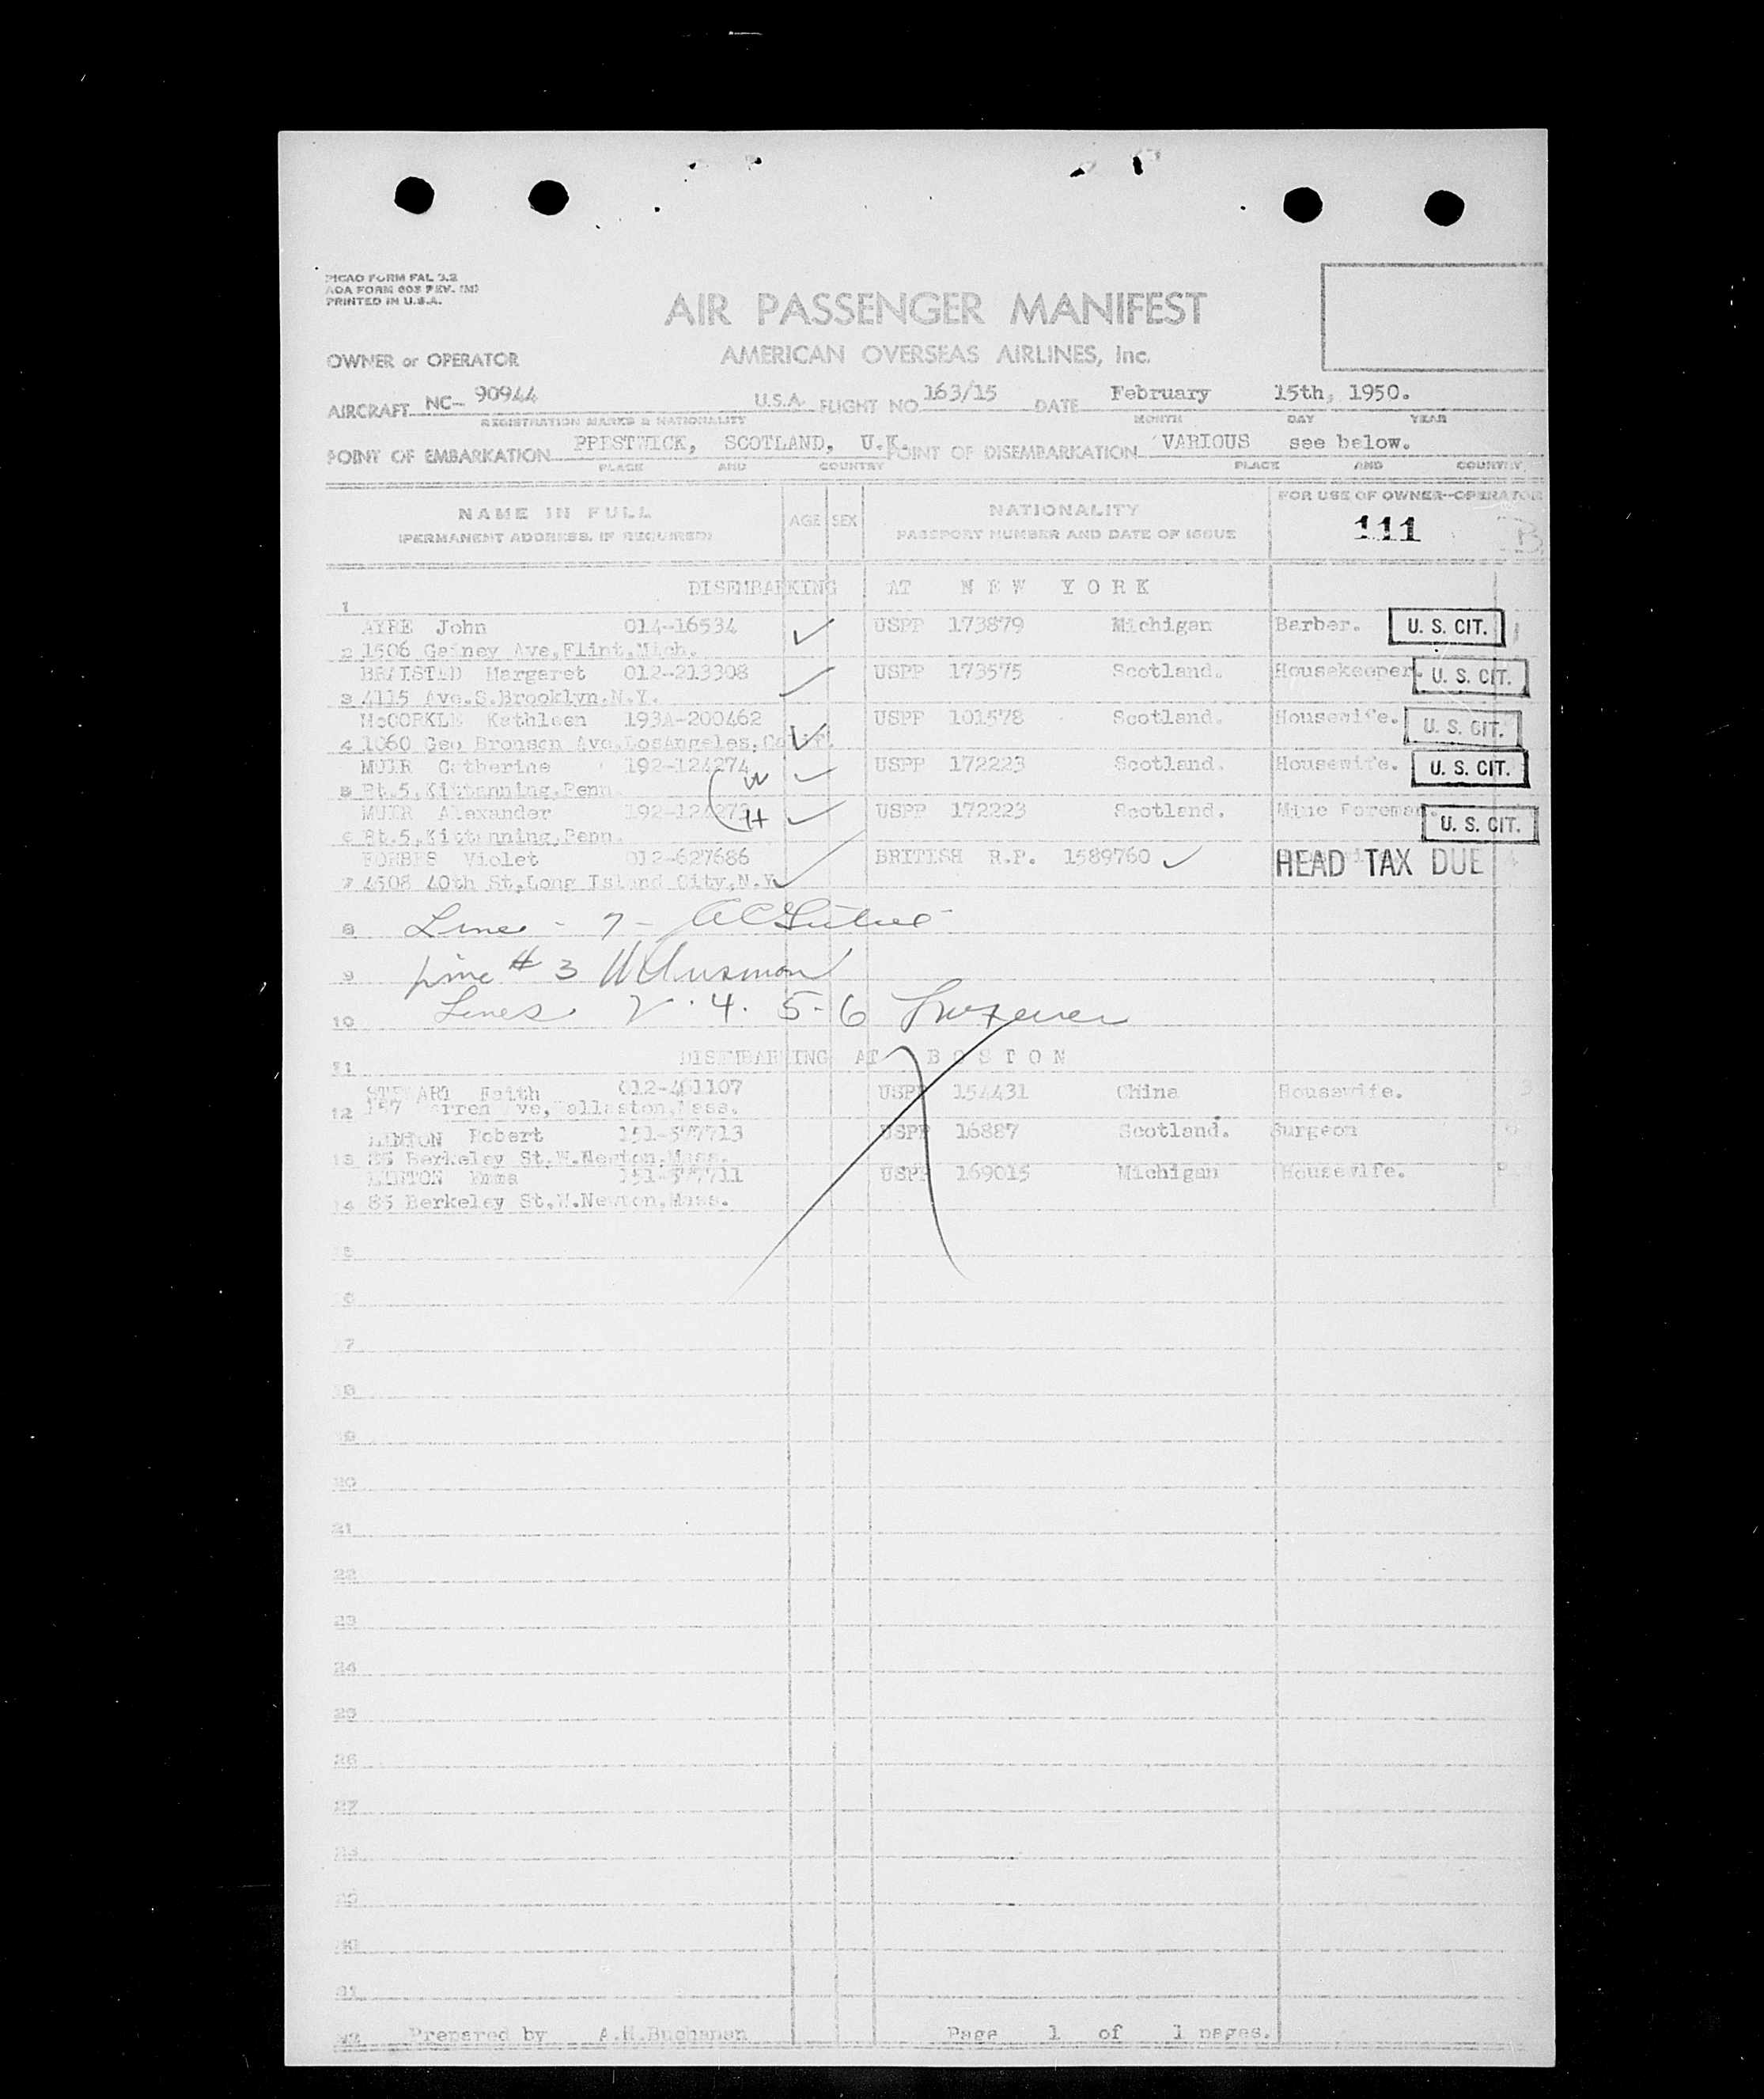 PICAO FORM FAL 3.2
AOA FORM 603 REV. (M)
PRINTED IN U.S.A.
AIR PASSENGER MANIFEST
OWNER or OPERATOR AMERICAN OVERSEAS AIRLINES, Inc.
AIRCRAFT NC- 90944 U.S.A. FLIGHT NO 163/15 DATE February 15th, 1950.
REGISTRATION MARKS & NATIONALITY MONTH DAY YEAR
POINT OF EMBARKATION PRESTWICK, SCOTLAND, U.K. POINT OF DISEMBARKATION VARIOUS see below.
PLACE AND COUNTRY PLACE AND COUNTRY
NAME IN FULL AGE SEX NATIONALITY FOR USE OF OWNER-OPERATOR
(PERMANENT ADDRESS, IF REQUIRED) PASSPORT NUMBER AND DATE OF ISSUE 111 B
1 DISEMBARKING AT NEW YORK
AYRE John 014-16534 USPP 173879 Michigan Barber. U. S. CIT.
2 1506 Ave,Flint,Mich.
Margaret 012-213308 USPP 173575 Scotland. Housekeeper. U. S. CIT.
3 4115 Ave.S.Brooklyn.N.Y.
McCORKLE Kathleen 193A-200462 USPP 101578 Scotland. Housewife. U. S. CIT.
4 1060 Geo Bronson Ave,LosAngeles,Calif.
MUIR Catherine 192-124274 W USPP 172223 Scotland. Housewife. U. S. CIT.
5 Rt.5,Kittanning,Penn.
MUIR Alexander H USPP 172223 Scotland. Mine Foreman. U. S. CIT.
6 Rt.5,Kittanning,Penn.
FORBES Violet 012-627686 BRITISH R.P. 1589760 HEAD TAX DUE
7 4508 40th St,Long Island City,N.Y.
8 Line - 7 -
9 Line # 3
10 Lines 2 . 4. 5-6
11 DISEMBARKING AT BOSTON
STEWART Faith USPP 154431 China Housewife.
12 Ave, Wollaston,Mass.
LINTON Robert USPP 16887 Scotland. Surgeon
13 85 Berkeley St,W.Newton,Mass.
LINTON Emma USPP 169015 Michigan Housewife.
14 85 Berkeley St,W.Newton,Mass.
5
6
7
18
19
20
21
22
23
24
25
26
27
28
29
30
31
32 Prepared by A.H.Buchanan Page 1 of 1 pages.